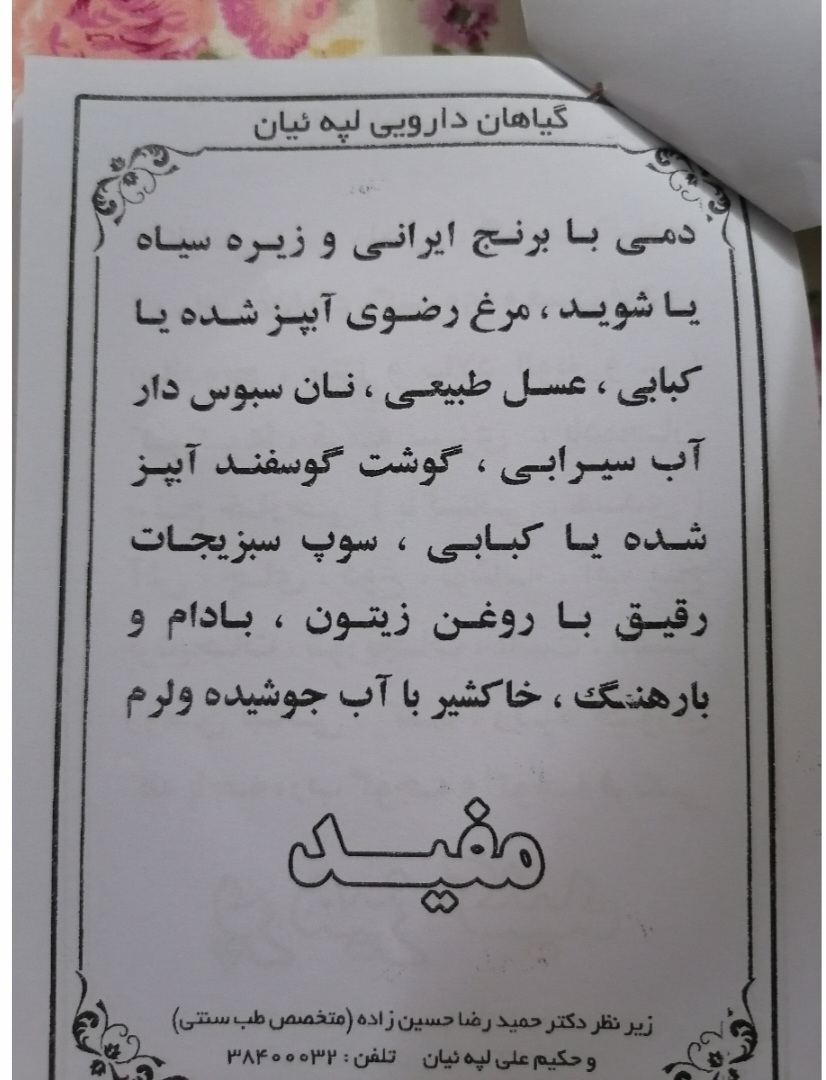 گیاهان دارویی لپه ئیان
دمی با برنج ایرانی و زیره سیاه
یا شوید ، مرغ رضوی آبپز شده یا
کبابی ، عسل طبیعی ، نان سبوس دار
آب سیرابی ، گوشت گوسفند آبپز
شده یا کبابی ، سوپ سبزیجات
رقیق با روغن زیتون ، بادام و
بارهنگ ، خاکشیر با آب جوشیده ولرم
مفید
زیر نظر دکتر حمید رضا حسین زاده (متخصص طب سنتی)
و حکیم علی لپه ئیان تلفن : ۳۸۴۰۰۰۳۲